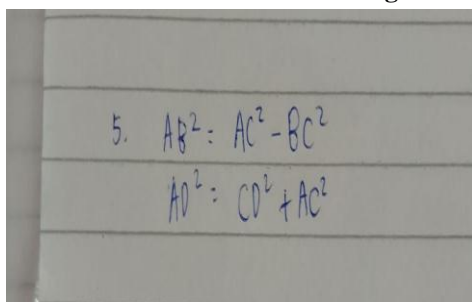 5. AB² = AC² - BC²
AD² = CD² + AC²